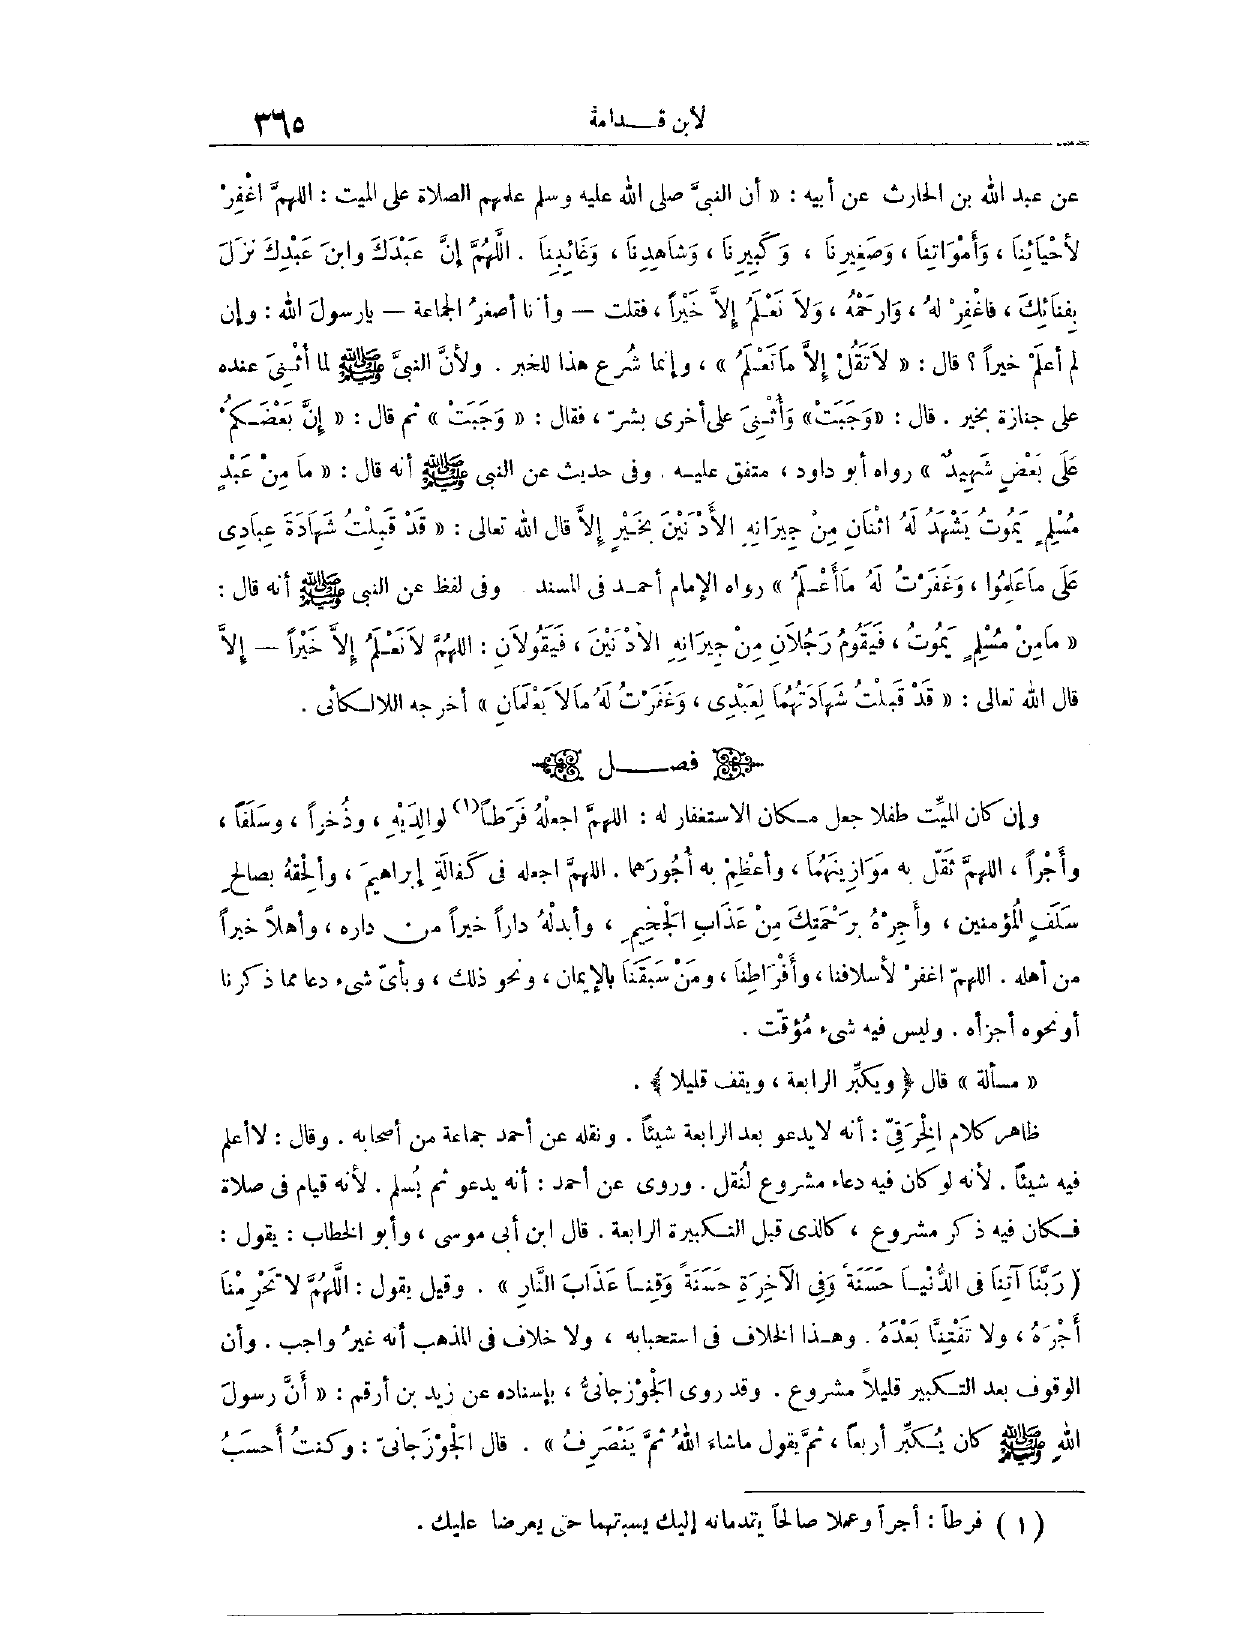 لابن قـــدامة ٣٦٥
عن عبد الله بن الحارث عن أبيه : « أن النبىَّ صلى الله عليه وسلم علمهم الصلاة على الميت : اللهمَّ اغْفِرْ
لأحْيَائِنَا ، وَأَمْوَاتِنَا ، وَصَغِيرِنَا ، وَكَبِيرِنَا ، وَشَاهِدِنَا ، وَغَائِبِنَا . اللَّهُمَّ إنَّ عَبْدَكَ وابنَ عَبْدِكَ نزَلَ
بِفِنَائِكَ ، فَاغْفِرْ لَهُ ، وَارحَمْهُ ، وَلاَ نَعْلَمُ إلاَّ خَيْراً ، فقلت — وأنا أصغرُ الجماعة — يارسولَ الله : وإن
لم أعلَمْ خيراً ؟ قال : « لاَتَقُلْ إلاَّ مَاتَعْلَمُ » ، وإنما شُرع هذا للخبر . ولأنَّ النبىَّ ﷺ لما أثْنِىَ عنده
على جنازة بخير . قال : «وَجَبَتْ» وَأُثْنِىَ على أخرى بشرّ ، فقال : « وَجَبَتْ » ثم قال : « إنَّ بَعْضَكمُ
عَلَى بَعْضٍ شَهِيدٌ » رواه أبو داود ، متفق عليه . وفى حديث عن النبى ﷺ أنه قال : « مَا مِنْ عَبْدٍ
مُسْلِمٍ يَمُوتُ يَشْهَدُ لَهُ اثْنَانِ مِنْ جِيرَانِهِ الأَدْنَيْنَ بِخَيْرٍ إلاَّ قال الله تعالى : « قَدْ قَبِلْتُ شَهَادَةَ عِبَادِى
عَلَى مَاعَلِمُوا ، وَغَفَرْتُ لَهُ مَاأَعْلَمُ » رواه الإمام أحمد فى المسند . وفى لفظ عن النبى ﷺ أنه قال :
« مَامِنْ مُسْلِمٍ يَمُوتُ ، فَيَقُومُ رَجُلاَنِ مِنْ جِيرَانِهِ الأَدْنَيْنَ ، فَيَقُولاَنِ : اللهُمَّ لاَنَعْلَمُ إلاَّ خَيْراً — إلاَّ
قال الله تعالى : « قَدْ قَبِلْتُ شَهَادَتَهُمَا لِعَبْدِى ، وَغَفَرْتُ لَهُ مَالاَ يَعْلَمَانِ » أخرجه اللالكائى .
فصـــــل
وإن كان الميِّت طفلا جعل مكان الاستغفار له : اللهمَّ اجعلْهُ فَرَطاً(١) لوالِدَيْهِ ، وذُخراً ، وسَلَفاً ،
وأَجْراً ، اللهمَّ ثَقِّل به مَوَازِينَهُمَا ، وأعْظِمْ به أُجُورَهما . اللهمَّ اجعله فى كَفَالَةِ إبراهيمَ ، وأَلْحِقْهُ بصالحِ
سَلَفِ المُؤمنين ، وأَجِرْهُ بِرَحْمَتِكَ مِنْ عَذَابِ الجَحِيمِ ، وأبدلْهُ داراً خيراً من داره ، وأهلاً خيراً
من أهله . اللهمّ اغفرْ لأسلافنا ، وأَفْرَاطِنَا ، ومَنْ سَبَقَنَا بالإيمان ، ونحو ذلك ، وبأىّ شىء دعا مما ذكرنا
أو نحوه أجزأه . وليس فيه شىء مُؤقّت .
« مسألة » قال ﴿ ويكبِّر الرابعة ، ويقف قليلا ﴾ .
ظاهر كلام الخِرَقِىّ : أنه لا يدعو بعد الرابعة شيئاً . ونقله عن أحمد جماعة من أصحابه . وقال : لاأعلم
فيه شيئاً . لأنه لو كان فيه دعاء مشروع لنُقل . وروى عن أحمد : أنه يدعو ثم يُسلم . لأنه قيام فى صلاة
فكان فيه ذكر مشروع ، كالذى قبل التكبيرة الرابعة . قال ابن أبى موسى ، وأبو الخطاب : يقول :
( رَبَّنَا آتِنَا فى الدُّنْيَا حَسَنَةً وَفِى الآخِرَةِ حَسَنَةً وَقِنَا عَذَابَ النَّارِ » . وقيل يقول : اللَّهُمَّ لا تَحْرِمْنَا
أَجْرَهُ ، ولا تَفْتِنَّا بَعْدَهُ . وهذا الخلاف فى استحبابه ، ولا خلاف فى المذهب أنه غيرُ واجب . وأن
الوقوف بعد التكبير قليلاً مشروع . وقد روى الجُوْزجانىُّ ، بإسناده عن زيد بن أرقم : « أنَّ رسولَ
اللهِ ﷺ كان يُكبِّر أربعاً ، ثمَّ يقول ماشاء اللهُ ثمَّ يَنْصَرِفُ » . قال الجُوْزَجانىّ : وكنتُ أحسَبُ
( ١ ) فرطاً : أجراً وعملا صالحاً يتقدمانه إليك يسبتهما حتى يعرضا عليك .